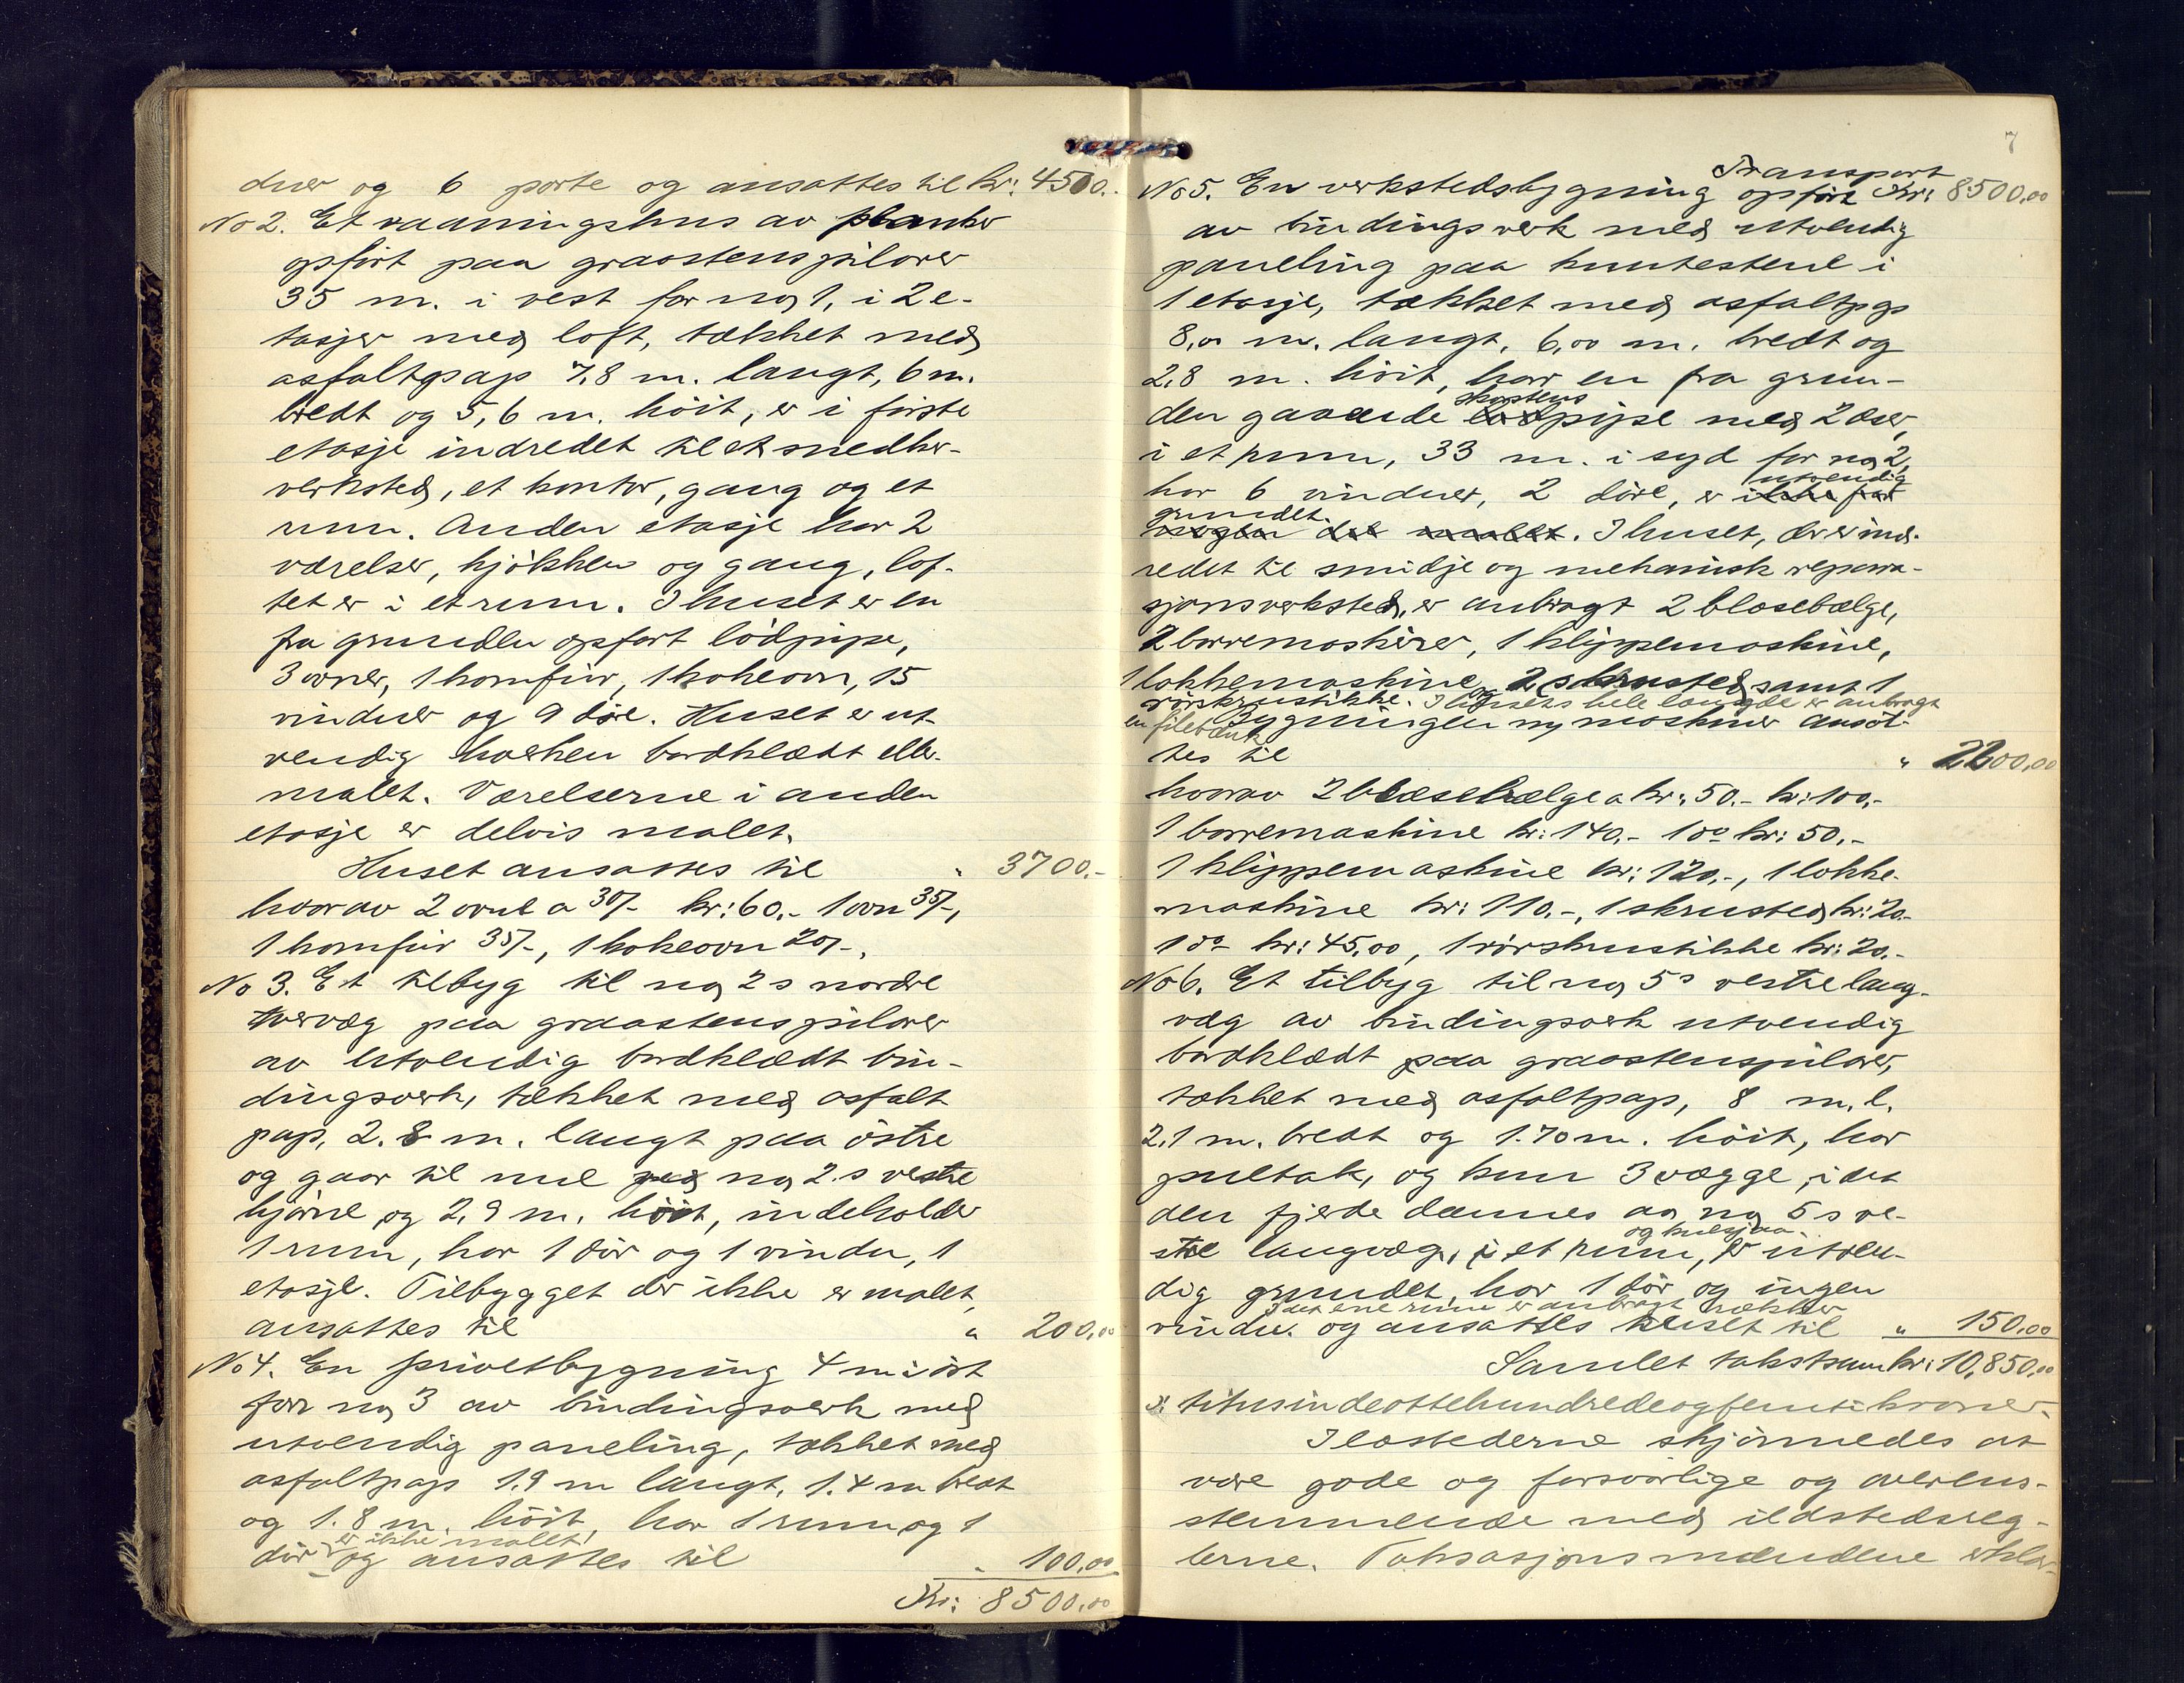 duer og 6 porte og ansattes til kr: 4500.-
No 2. Et vaaningshus av planker
opført paa graastenspilarer
35 m. i vest for no 1, i 2 e-
tasjer med loft, tækket med
asfaltpap 7,8 m. langt, 6 m.
bredt og 5,6 m. höit, er i første
etasje indredet til et snedker-
verksted, et kontor, gang og et
rum. Anden etasje har 2
værelser, kjøkken og gang, lof-
tet er i et rum. I huset er en
fra grunden opført lödpipe,
3 ovner, 1 komfür, 1 kokeovn, 15
vinduer og 9 döre. Huset er ut-
vendig hverken bordklædt eller
malet. Værelserne i anden
etasje er delvis malet.
Huset ansattes til " 3700.-
hvorav 2 ovne a 30/- kr: 60.- 1 ovn 35/-,
1 komfür 35/-, 1 kokeovn 20/-.
No 3. Et tilbyg til no 2s nordre
tvervæg paa graastenspilarer
av utvendig bordklædt bin-
dingsverk, tækket med asfalt
pap, 2.8 m. langt paa östre
og gaar til nul ved no 2.s vestre
hjørne og 2,9 m. höit, indeholder
1 rum, har 1 dör og 1 vindu, 1
etasje. Tilbygget der ikke er malet,
ansattes til " 200,00
No 4. En privetbygning 4 m i öst
for no 3 av bindingsverk med
utvendig paneling, tækket med
asfaltpap 1.9 m langt, 1.4 m bredt
og 1.8 m. höit, har 1 rum og 1
er ikke malet
dör og ansattes til " 100,00
Kr: 8500,00
7
Transport
No 5. En verkstedsbygning opført Kr: 8500,00
av bindingsverk med utvendig
paneling paa kuntestene i
1 etasje, tækket med asfaltpap
8,00 m. langt, 6,00 m. bredt og
2,8 m. höit, har en fra grun-
skorstens
den gaaende pipe med 2 æser,
i et rum, 33 m. i syd for no 2,
utvendig
har 6 vinduer, 2 döre, er ikke
grundet.
det malet. I huset, der er ind-
redet til smidje og mekanisk repara-
sjonsverksted, er anbragt 2 blæsebælge,
2 borremaskiner, 1 klippemaskine,
1 lokkemaskine, 2 skrusted samt 1
rörskrustikke. I husets hele længde er anbragt
en filebænk
Bygningen og maskiner ansat-
tes til " 2200,00
hvorav 2 blæsebælge a kr. 50.- kr: 100.-
1 borremaskine kr: 140.- 1 do kr: 50.-
1 klippemaskine kr: 120.-, 1 lokke-
maskine kr: 110.-, 1 skrusted kr: 20.-
1 do kr: 45,00, 1 rörskrustikke kr: 20.-
No 6. Et tilbyg til no 5s vestre lang-
væg av bindingsverk utvendig
bordklædt paa graastenspilarer,
tækket med asfaltpap, 8 m. l.
2,1 m. bredt og 1.70 m. höit, har
pultak, og kun 3 vægge, idet
den fjerde dannes av no 5s ve-
og kulsjaa
stre langvæg, i et rum, er utven-
dig grundet, har 1 dör og ingen
I det ene rum er anbragt
vindu. og ansattes huset til " 150,00
Samlet takstsum kr: 10,850,00
titusindeottehundredeogfemti kroner.
Ildstederne skjønnedes at
være gode og forsvarlige og overens-
stemmende med ildstedsreg-
lerne. Taksasjonsmændene erklær-